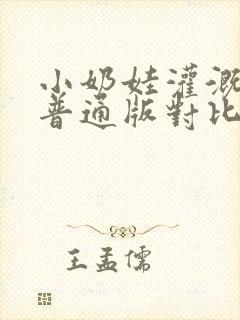 小奶娃灌溉
普通版對比
王孟儒